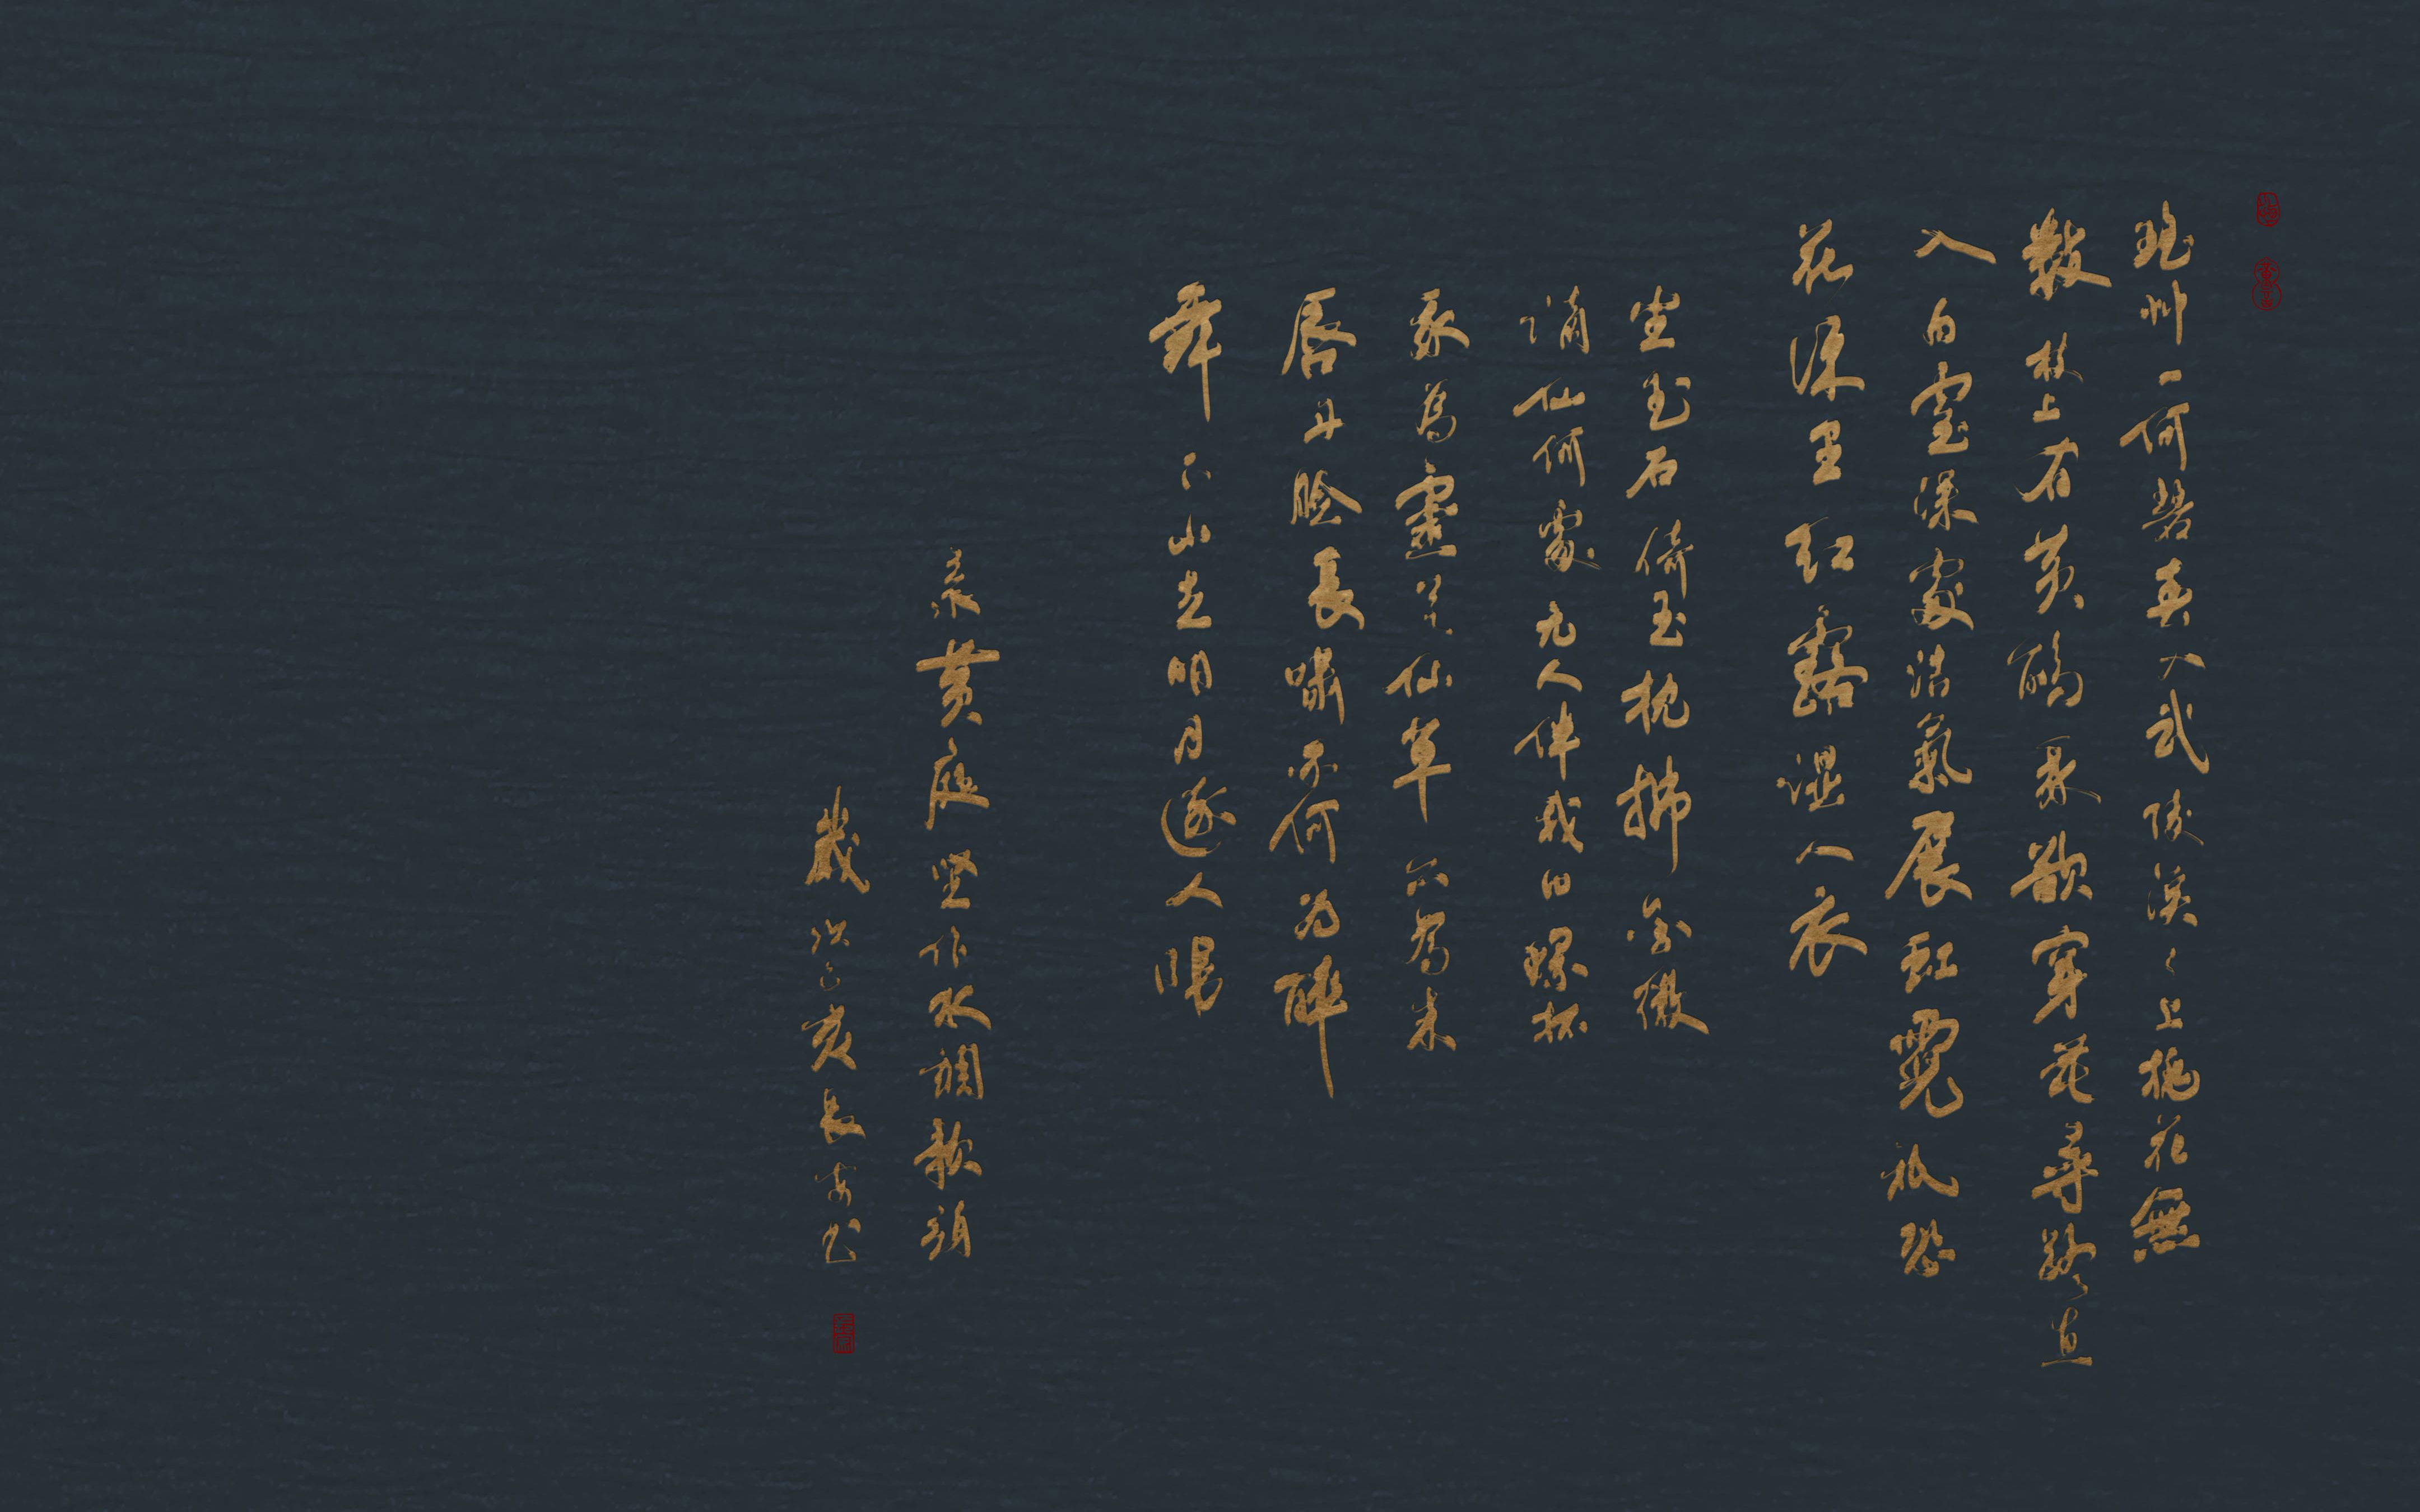 瑤艸一何碧春入武陵溪々上桃花無
數枝上有黃鸝我欲穿花尋路直
入白雲深處浩氣展虹霓祇恐
花深里紅露濕人衣
坐玉石倚玉枕拂金徽
謫仙何處无人伴我白螺杯
我為靈芝仙草不為朱
唇丹臉長嘯亦何為醉
舞下山去明月逐人歸
录黃庭堅作水調歌頭
歲次己亥長安书